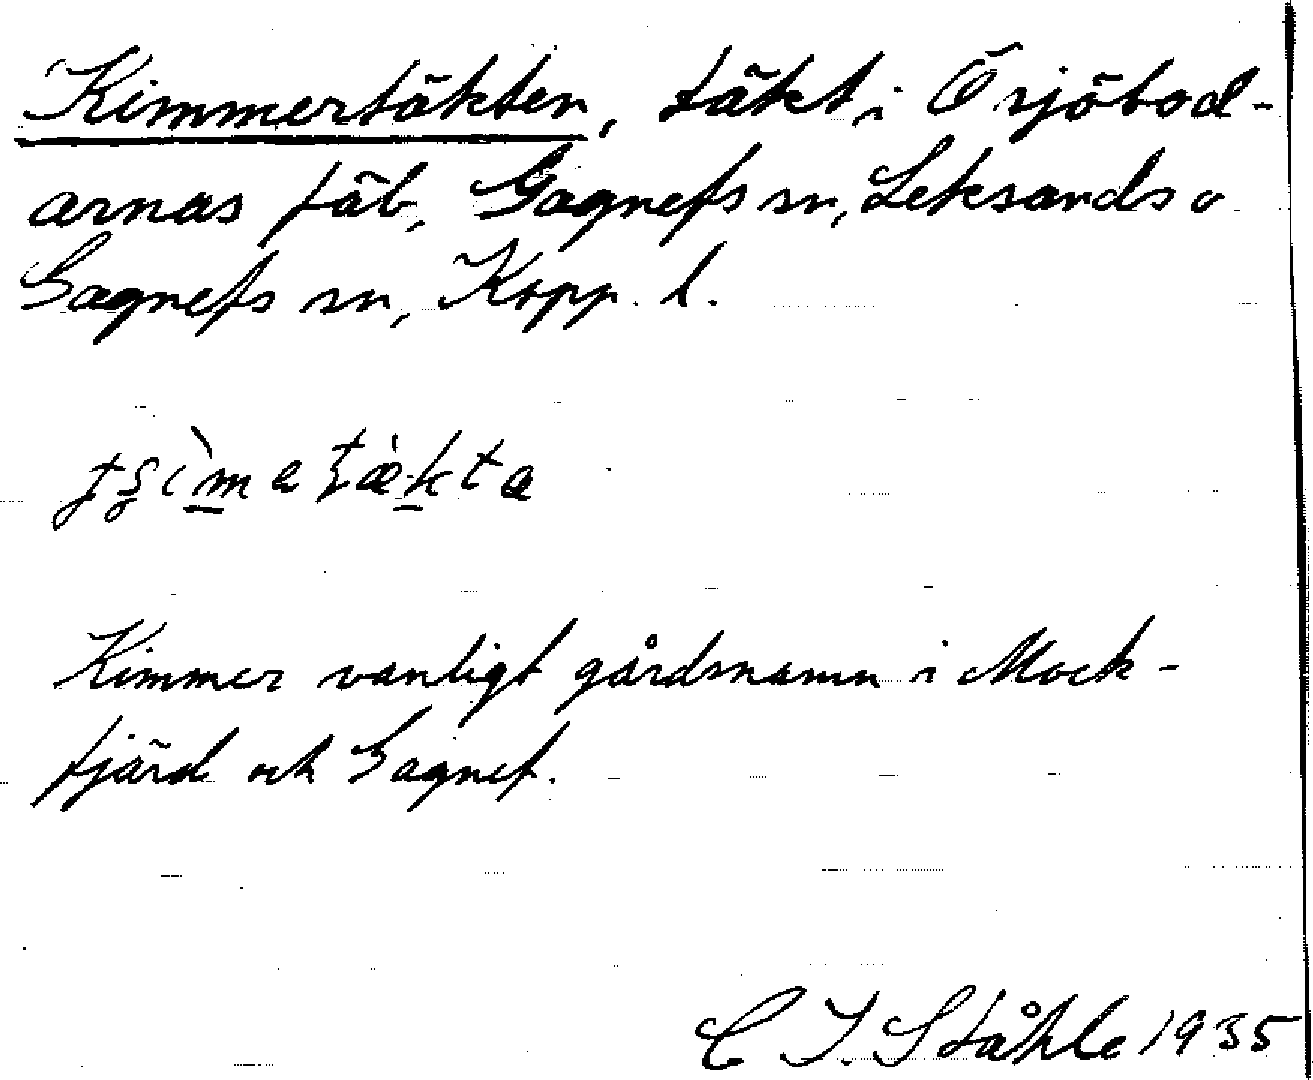 Kimmertäkten, täkt i Örjöbod-
arnas fäb, Gagnefs sn, Leksands o
Gagnefs sn, Kopp. l.
Kimmer vanligt gårdsnamn i Mock-
fjärd och Gagnef.
C I. Ståhle 1935